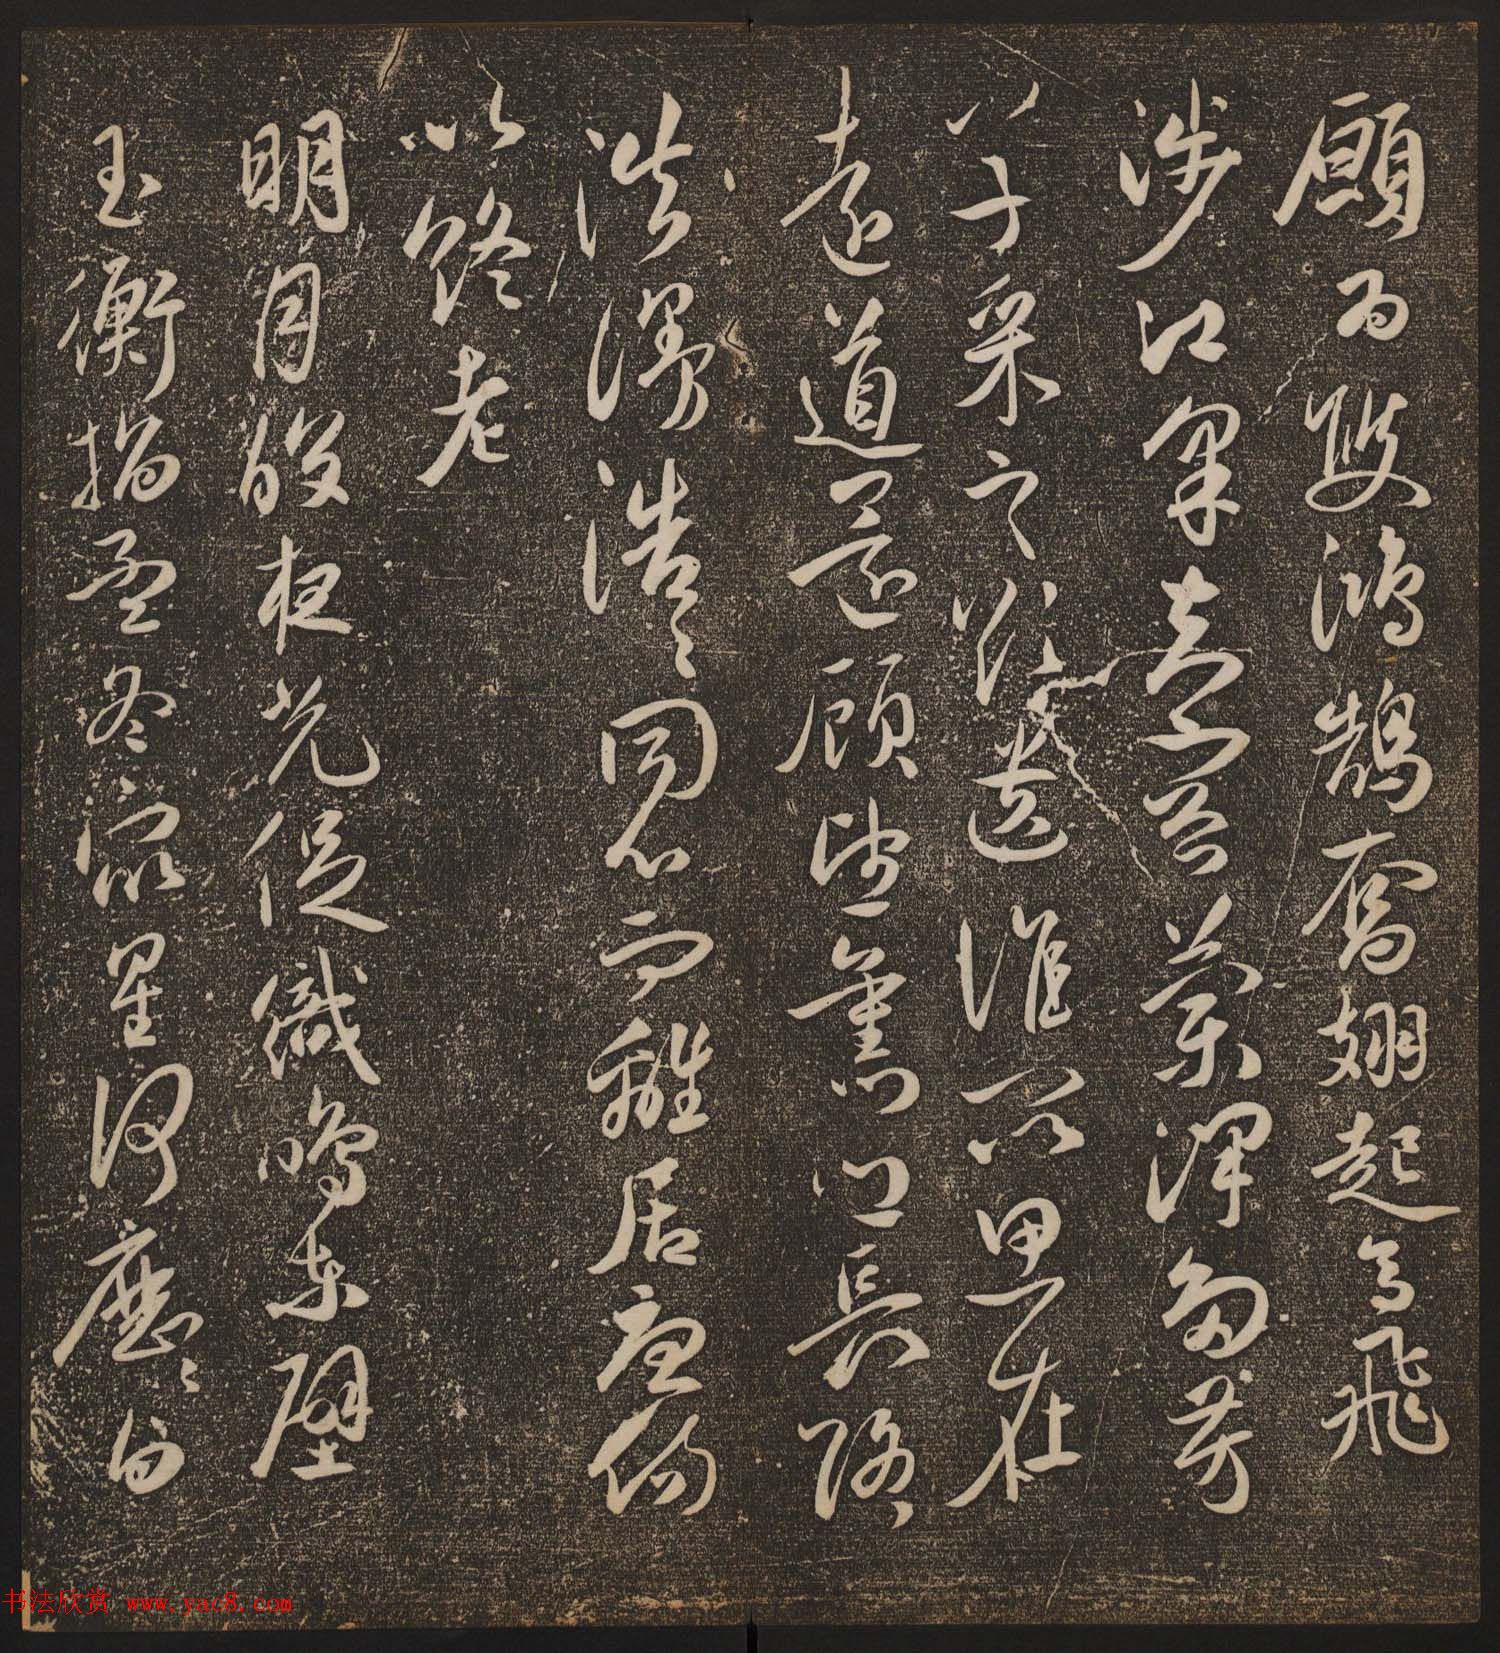 願為雙鴻鵠奮翅起高飛
涉江采芙蓉蘭澤多芳
草采之欲遺誰所思在
遠道還顧望舊鄉長路
浩漫浩〻同心而離居憂傷
以終老
明月皎夜光促織鳴東壁
玉衡指孟冬眾星何歷〻白
书法欣赏 www.yac8.com